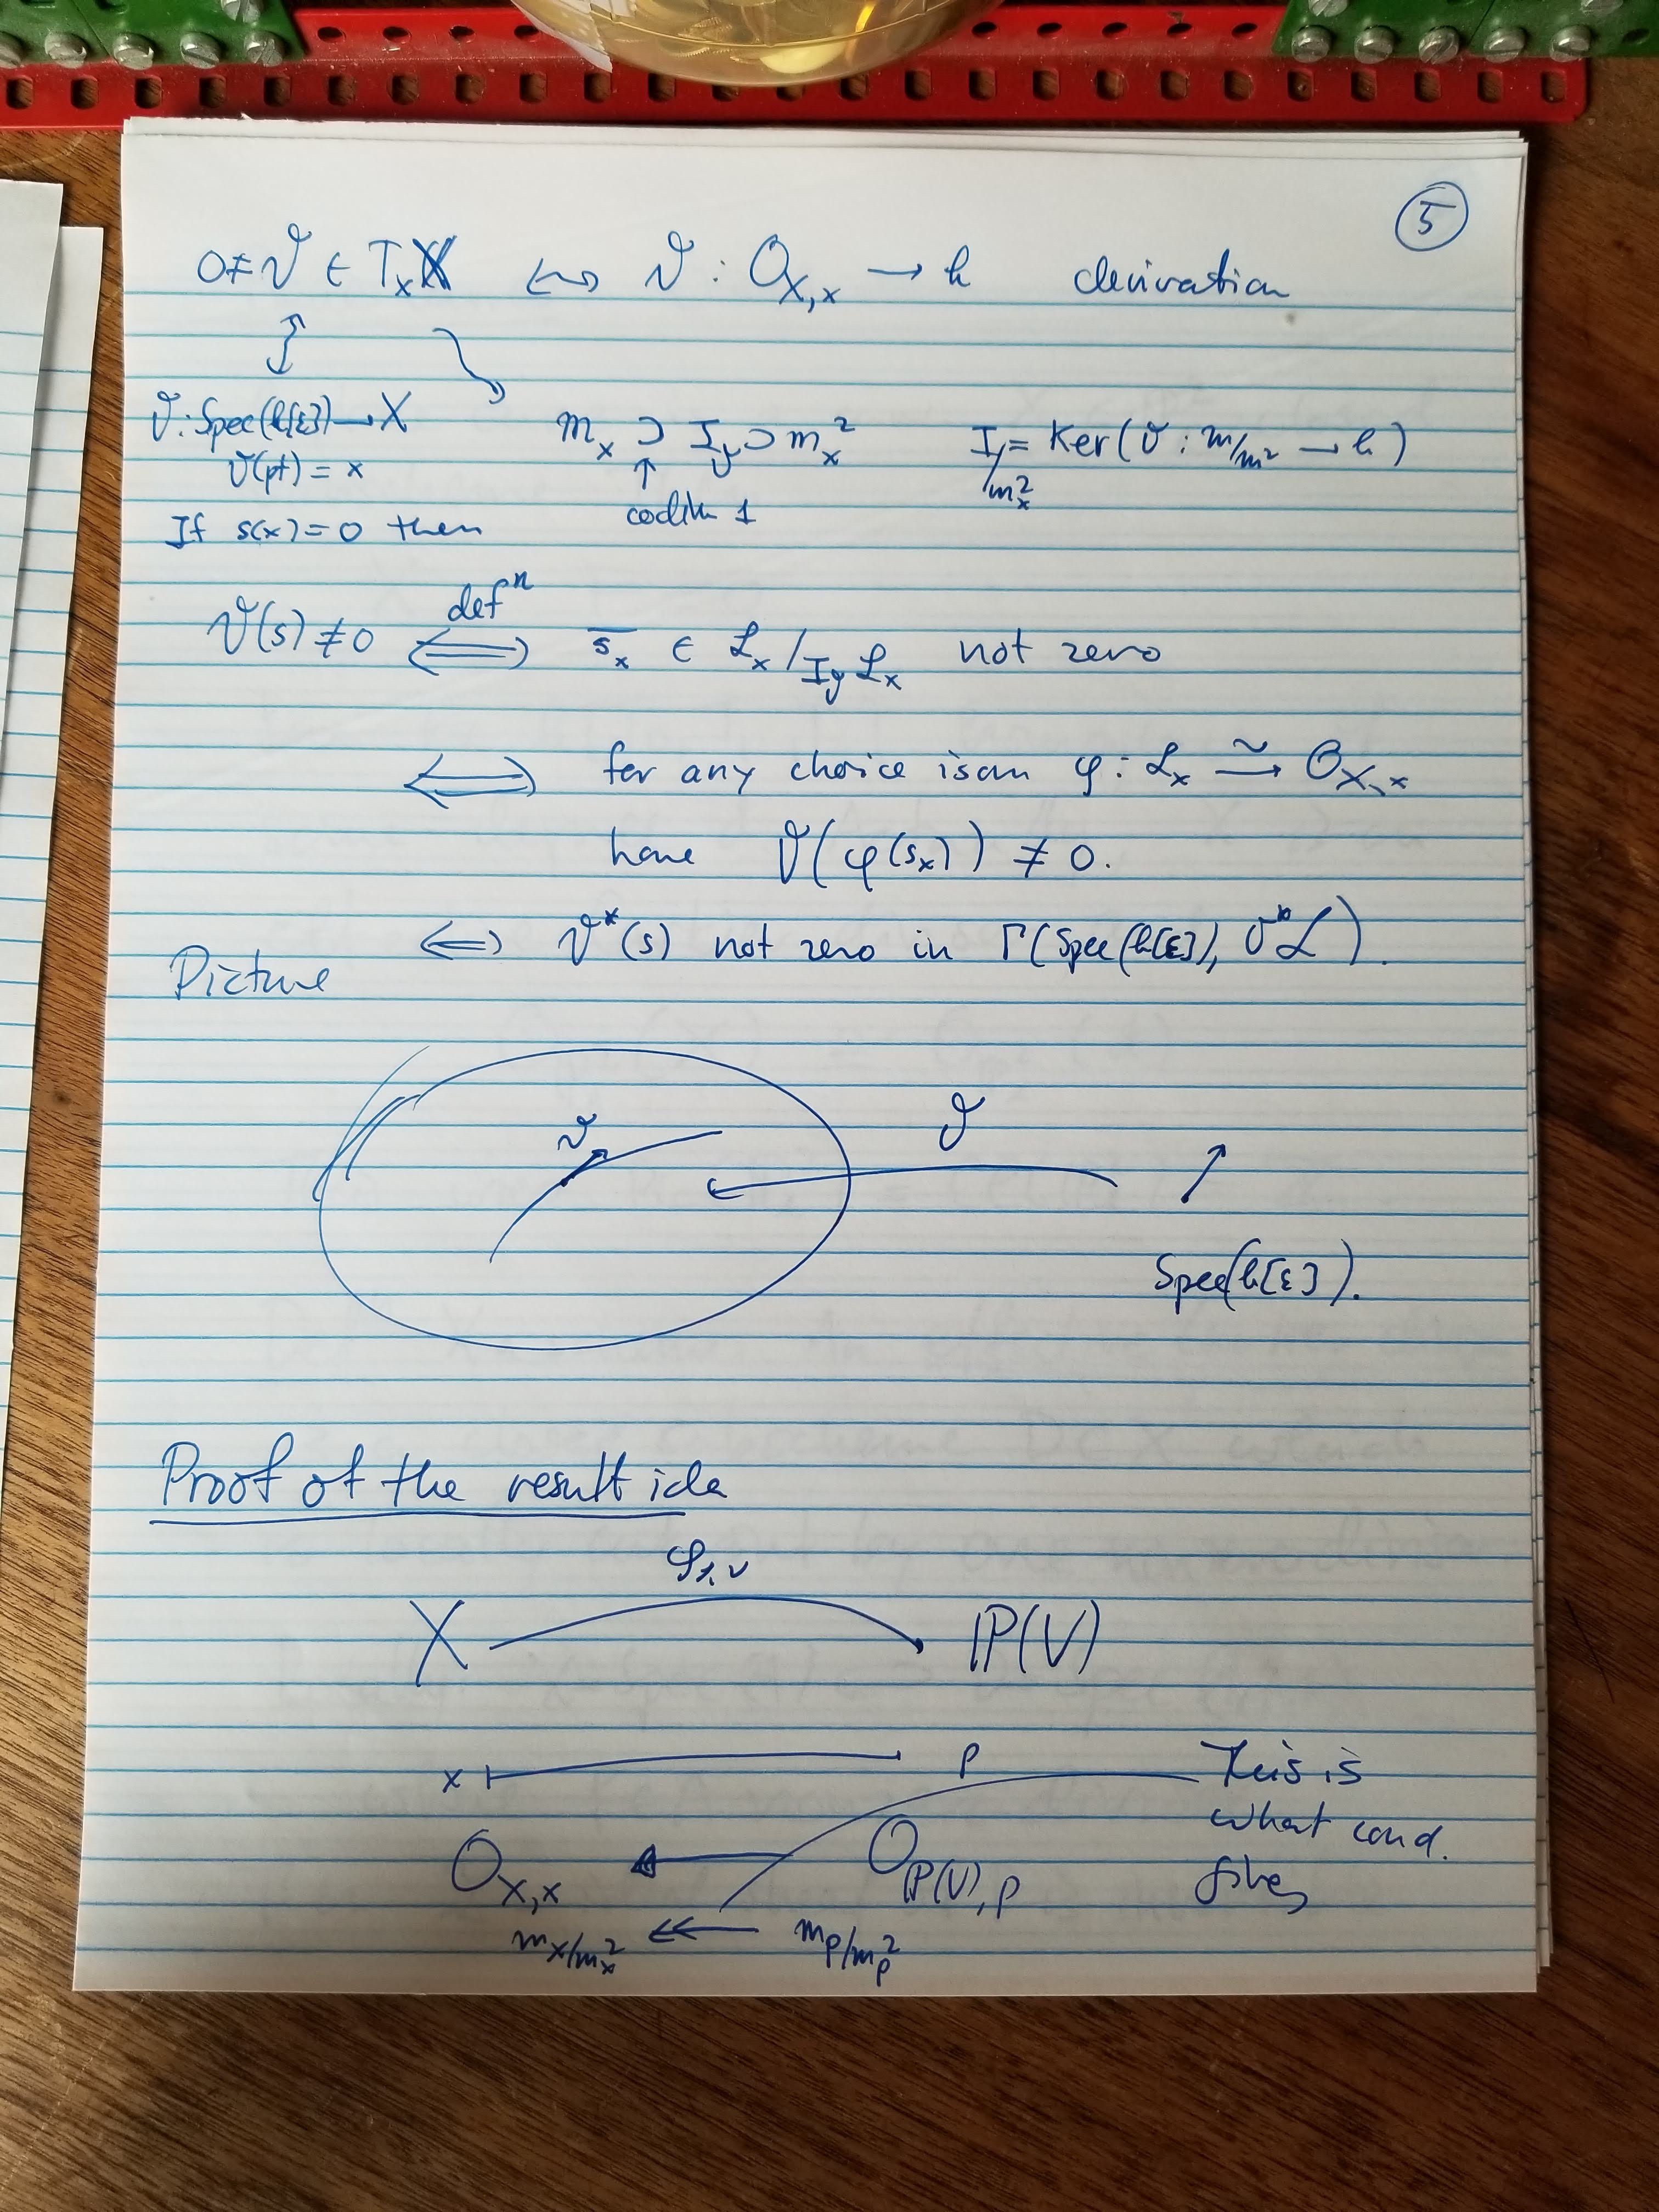 5
0 ≠ ϑ ∈ T_x X ↔ ϑ : O_{X,x} → k derivation
ϑ : Spec(k[ε]) → X
ϑ(pt) = x
m_x ⊃ I_ϑ ⊃ m_x^2
↑
codim 1
I_ϑ/m_x^2 = Ker(ϑ : m/m^2 → k)
If s(x) = 0 then
ϑ(s) ≠ 0 ⟺ def^n \overline{s_x} ∈ ℒ_x / I_ϑ ℒ_x not zero
⟺ for any choice isom φ : ℒ_x ⥲ O_{X,x}
have ϑ(φ(s_x)) ≠ 0.
⟺ ϑ^*(s) not zero in Γ(Spec(k[ε]), ϑ^*ℒ).
Picture
ϑ
ϑ
Spec(k[ε]).
Proof of the result idea
φ_{ℒ,V}
X → ℙ(V)
x ↦ p
This is
what cond.
gives
O_{X,x} ← O_{ℙ(V),p}
m_x/m_x^2 ↞ m_p/m_p^2